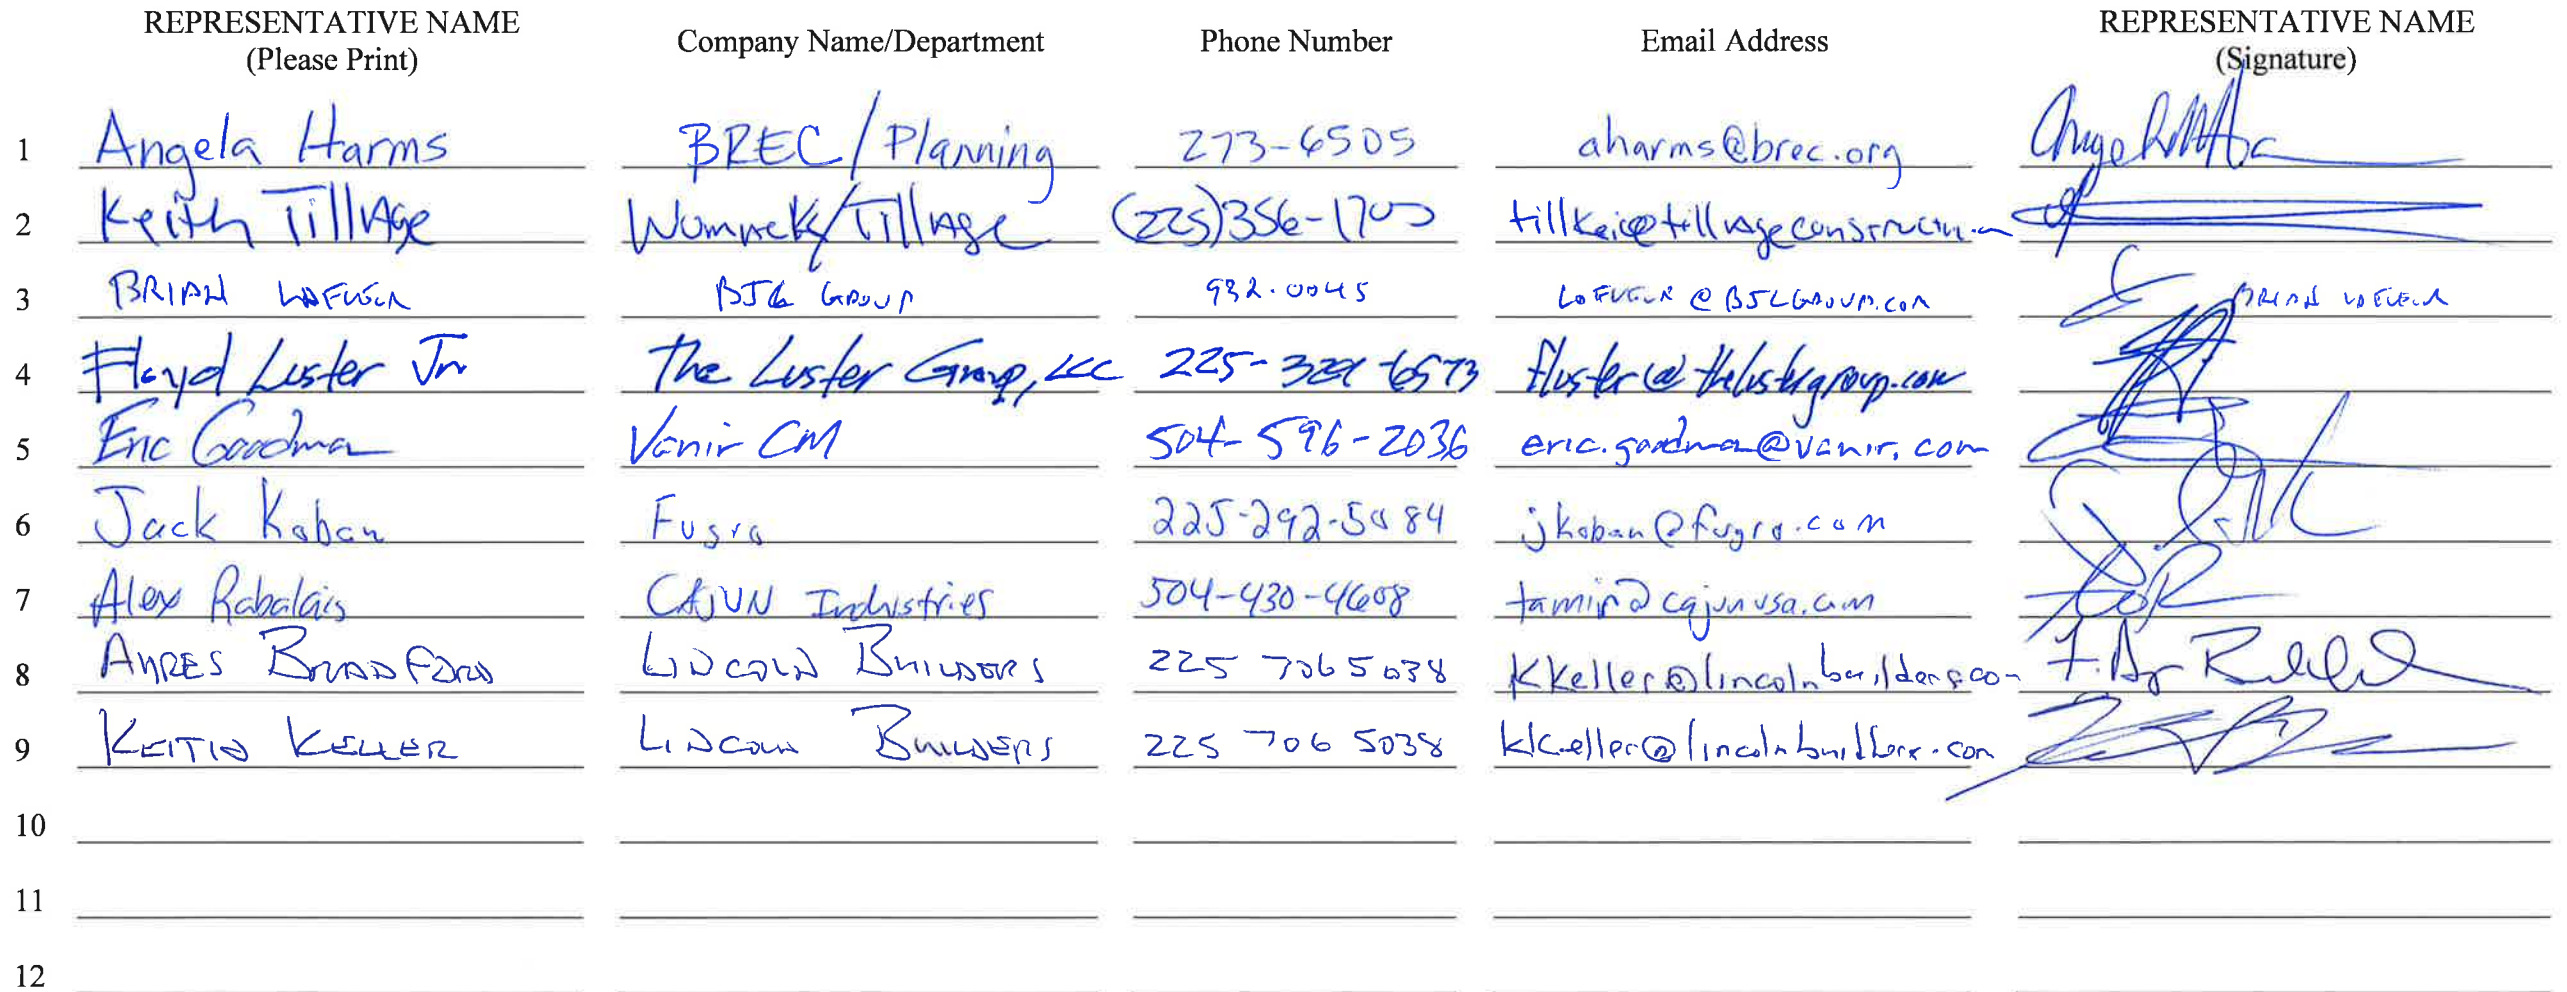 REPRESENTATIVE NAME Company Name/Department Phone Number Email Address REPRESENTATIVE NAME
(Please Print) (Signature)
1 Angela Harms BREC/Planning 273-6505 aharms@brec.org
2 Keith Tillage Womack/Tillage (225)356-1700
3 BRIAN GROUP 932.0045 BRIAN
4 Floyd Luster Jr The Luster Group, LLC 225- fluster@thelustergroup.com
5 Eric Goodman Vanir CM 504-596-2036 eric.goodman@vanir.com
6 Jack Koban Fugro 225-292-5084 jkoban@fugro.com
7 Alex Rabalais CAJUN Industries 504-430-4608 tamir@cajunusa.com
8 AYRES BRADFORD LINCOLN BUILDERS 225 706 5038 kkeller@lincolnbuilders.com
9 KEITH KELLER LINCOLN BUILDERS 225 706 5038 kkeller@lincolnbuilders.com
10
11
12